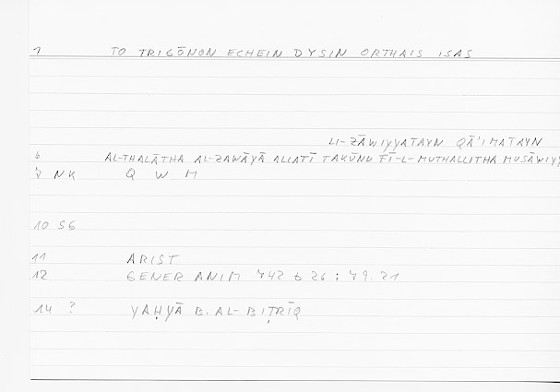 1 TO TRIGŌNON ECHEIN DYSIN ORTHAIS ISAS
LI-ZĀWIYYATAYN QĀ'IMATAYN
6 AL-THALĀTHA AL-ZAWĀYĀ ALLATĪ TAKŪNU FĪ-L-MUTHALLITHA MUSĀWIY
7 NK Q W M
10 SG
11 ARIST
12 GENER ANIM 742 b 26 : 79.21
14 ? YAḤYĀ B. AL-BIṬRĪQ